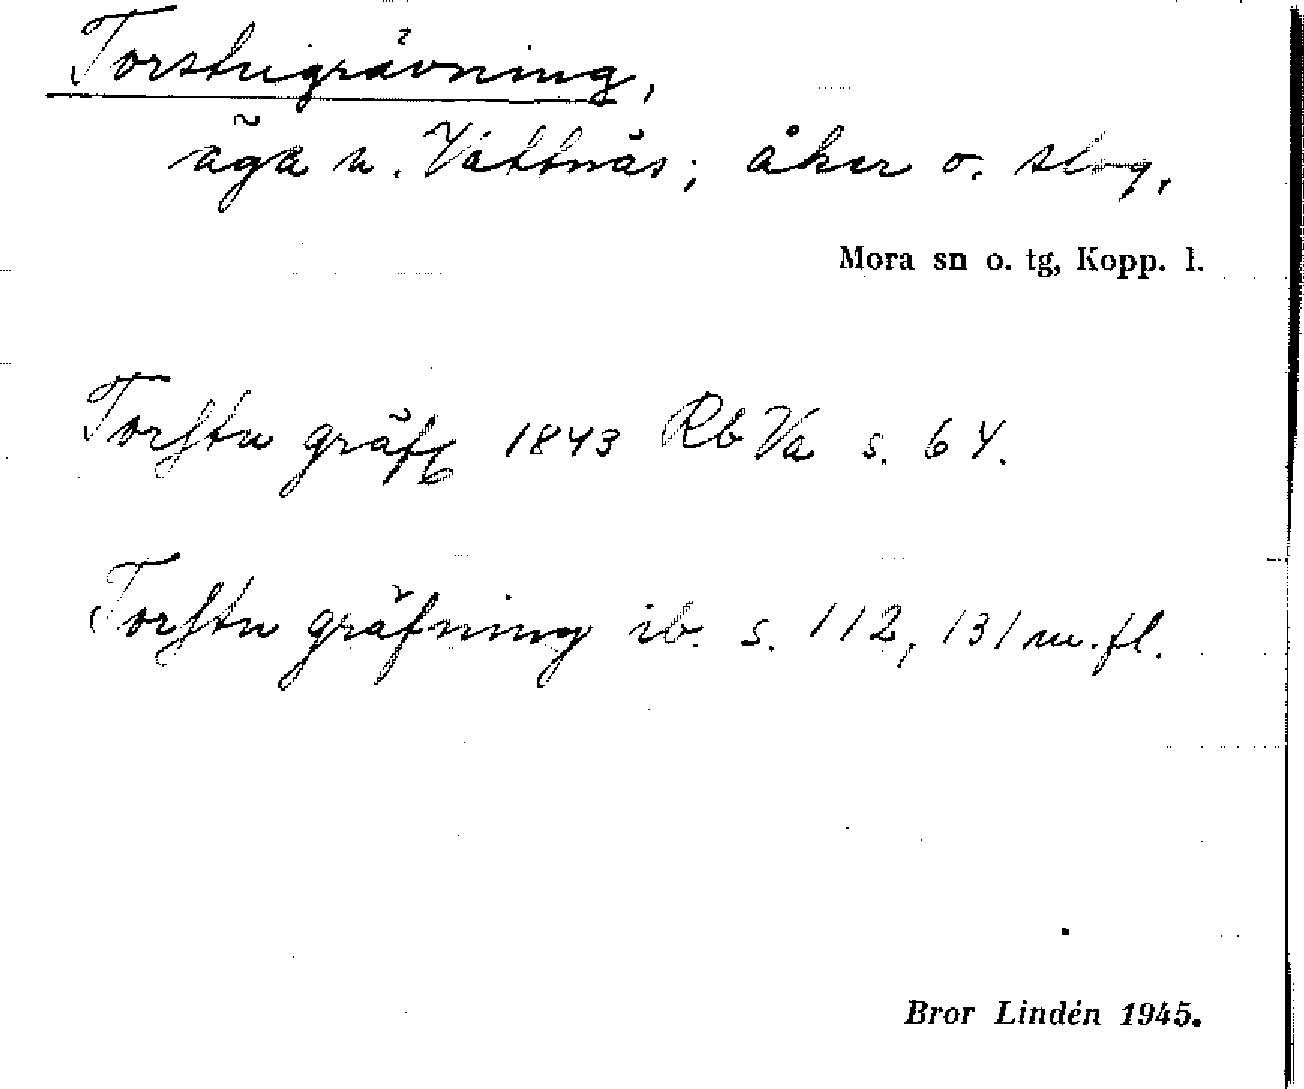 Torstugrävning,
äga n. Vattnäs; åker o. slog.
Mora sn o. tg, Kopp. l.
Torstu gräfg 1843 Rb Va s. 64.
Torstu gräfning ib. s. 112, 131 m. fl.
Bror Lindén 1945.